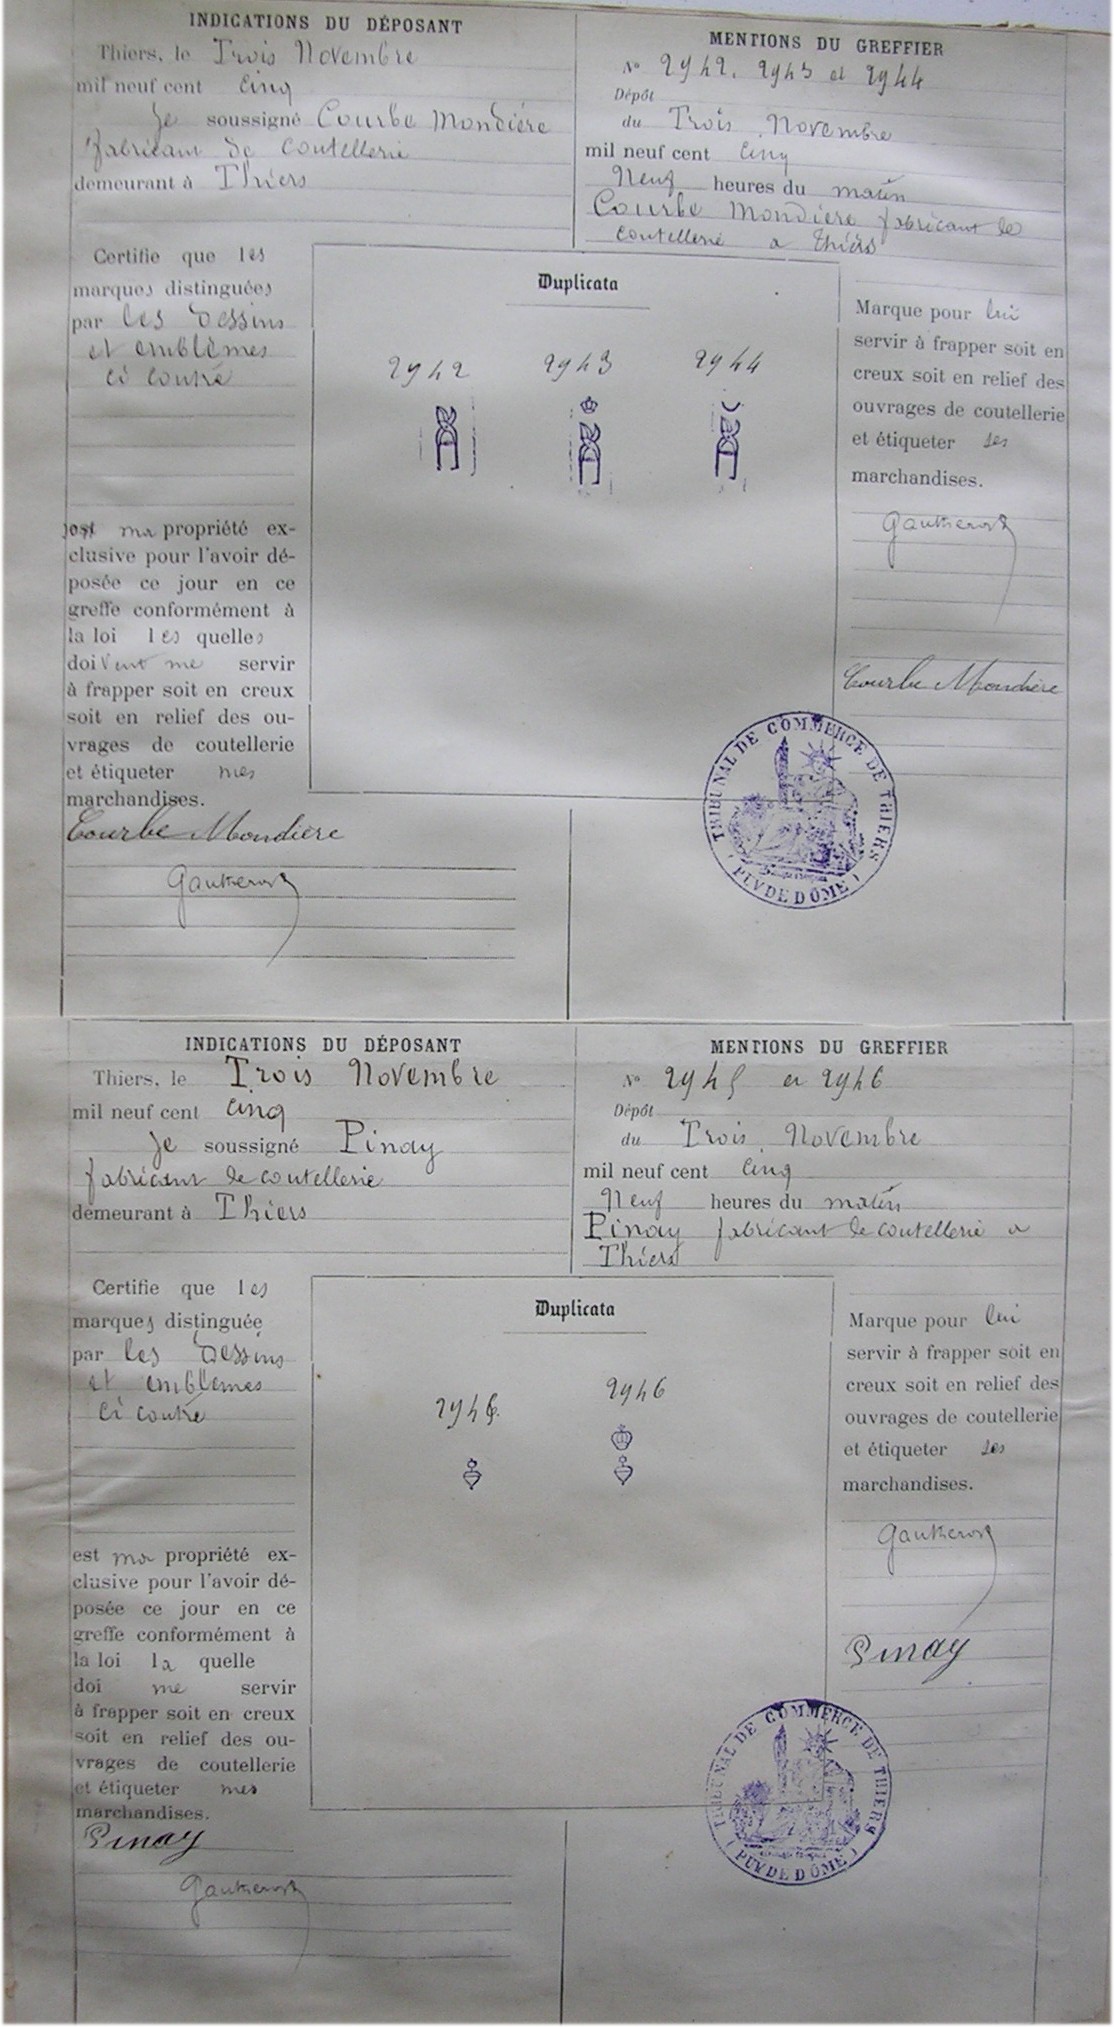 INDICATIONS DU DÉPOSANT
Thiers, le Trois Novembre
mil neuf cent cinq
Je soussigné Courbe Mondière
fabricant de coutellerie
demeurant à Thiers
MENTIONS DU GREFFIER
N° 2942, 2943 et 2944
Dépôt
du Trois Novembre
mil neuf cent cinq
Neuf heures du matin
Courbe Mondière fabricant de
coutellerie a Thiers
Certifie que les
marques distinguées
par les dessins
et emblèmes
ci contre
Duplicata
2942 2943 2944
Marque pour lui
servir à frapper soit en
creux soit en relief des
ouvrages de coutellerie
et étiqueter ses
marchandises.
Gautheron
Courbe Mondière
est ma propriété ex-
clusive pour l'avoir dé-
posée ce jour en ce
greffe conformément à
la loi les quelles
doivent me servir
à frapper soit en creux
soit en relief des ou-
vrages de coutellerie
et étiqueter mes
marchandises.
Courbe Mondière
Gautheron
TRIBUNAL DE COMMERCE DE THIERS
(PUY DE DÔME)
INDICATIONS DU DÉPOSANT
Thiers, le Trois Novembre
mil neuf cent cinq
Je soussigné Pinay
fabricant de coutellerie
demeurant à Thiers
MENTIONS DU GREFFIER
N° 2945 et 2946
Dépôt
du Trois Novembre
mil neuf cent cinq
Neuf heures du matin
Pinay fabricant de coutellerie a
Thiers
Certifie que les
marques distinguée
par les dessins
et emblèmes
ci contre
Duplicata
2945 2946
Marque pour lui
servir à frapper soit en
creux soit en relief des
ouvrages de coutellerie
et étiqueter ses
marchandises.
Gautheron
Pinay
est ma propriété ex-
clusive pour l'avoir dé-
posée ce jour en ce
greffe conformément à
la loi la quelle
doi me servir
à frapper soit en creux
soit en relief des ou-
vrages de coutellerie
et étiqueter mes
marchandises.
Pinay
Gautheron
TRIBUNAL DE COMMERCE DE THIERS
(PUY DE DÔME)